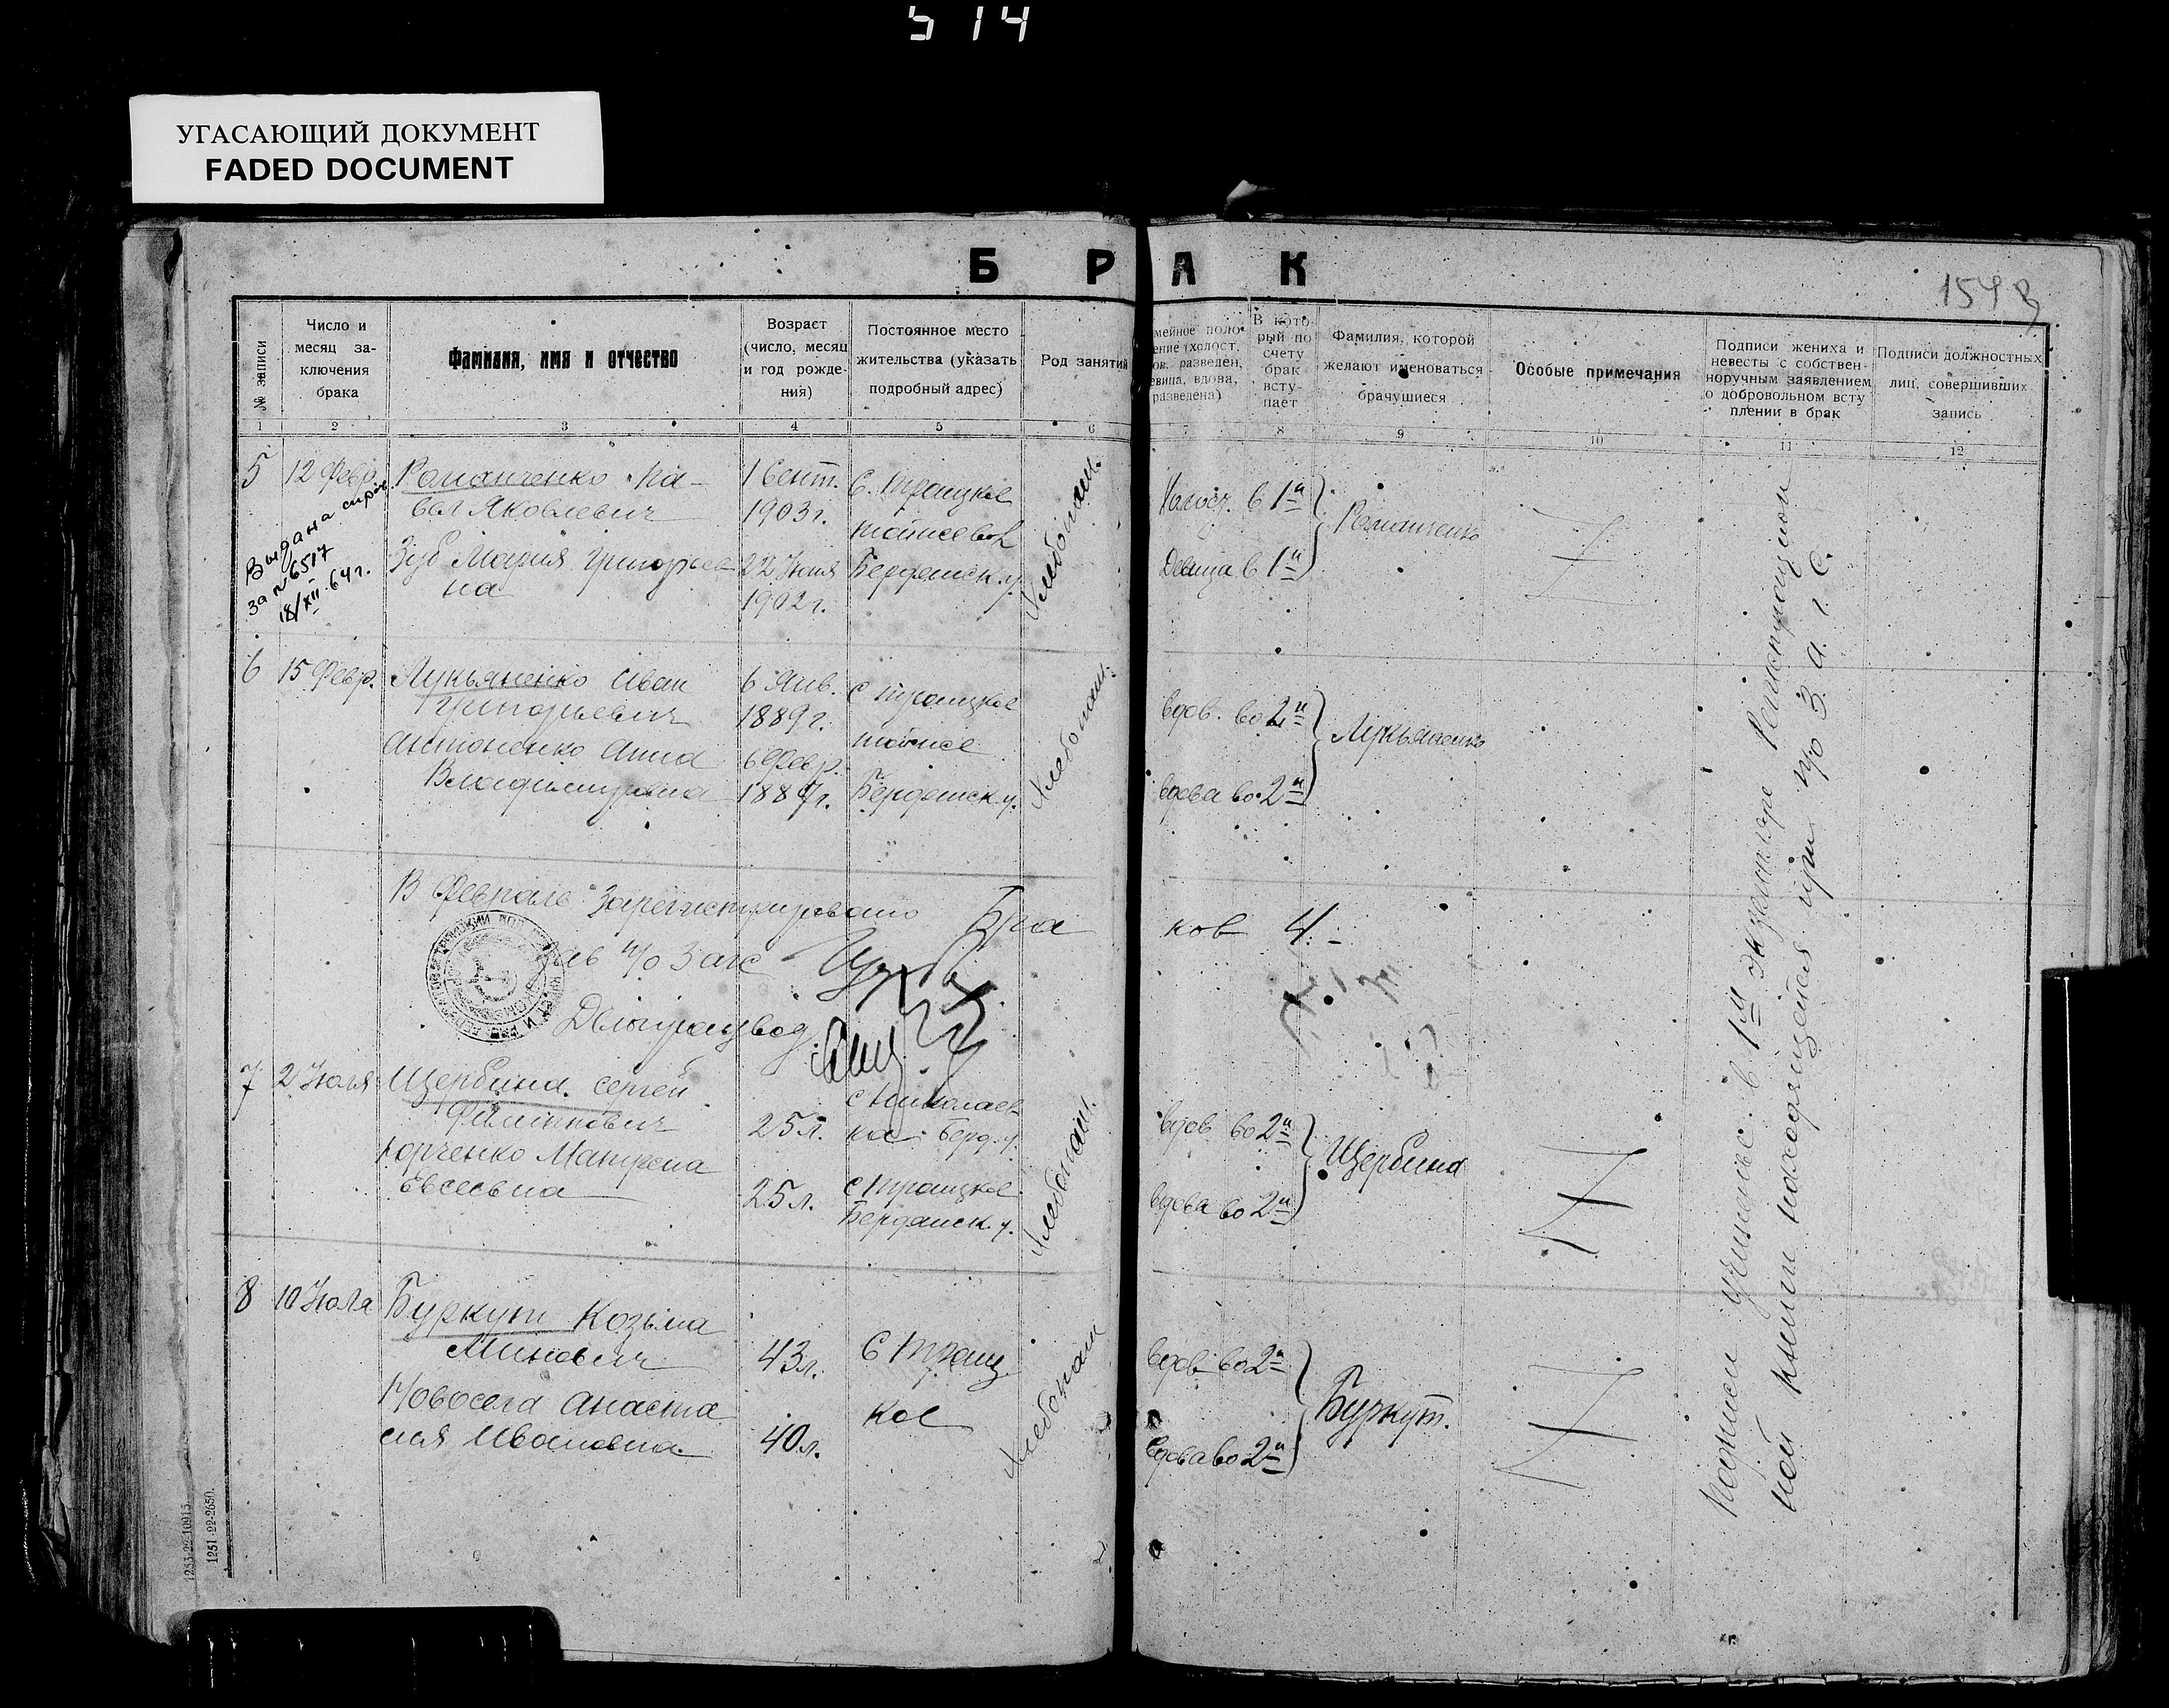 514
УГАСАЮЩИЙ ДОКУМЕНТ
FADED DOCUMENT
Б Р А К
1548
№ записи
Число и
месяц за-
ключения
брака
Фамилия, имя и отчество
Возраст
(число, месяц
и год рожде-
ния)
Постоянное место
жительства (указать
подробный адрес)
Род занятий
мейное поло-
ение (холост,
ов. разведен,
евица, вдова,
разведена)
В кото-
рый по
счету
брак
всту-
пает
Фамилия, которой
желают именоваться
брачущиеся
Особые примечания
Подписи жениха и
невесты с собствен-
норучным заявлением
о добровольном всту
плении в брак
Подписи должностных
лиц, совершивших
запись
1 2 3 4 5 6 7 8 9 10 11 12
5
12 Февр.
Выдана справ.
за № 6517
18/XII-64 г.
Романченко Па-
вел Яковлевич
Зуб Мария Григорьев
на
1 Сент.
1903 г.
22 Июня
1902 г.
С. Троицкое
Бердянск. у.
Хлебопаш.
Холост. в 1й
Девица в 1й
Романченко
6
15 Февр.
Лукьяненко Иван
Григорьевич
Антоненко Анна
Владимировна
6 Янв.
1889 г.
6 Февр.
1887 г.
с Троицкое
Бердянск. у.
Хлебопаш.
вдов. во 2й
вдова во 2й
Лукьяненко
В Феврале Зарегистрировано Бра
ков 4.-
Зав п/о Загс
Делопроизвод.
7
2 Июля
Щербина Сергей
Филиппович
Юрченко Матрена
Евсеевна
25 л.
25 л.
с Николаев
ка Берд. у.
с Троицкое
Бердянск. у.
Хлебопаш.
вдов во 2й
вдова во 2й
Щербина
8
10 Июля
Буркут Козьма
Минович
Новосела Анаста
сия Ивановна
43 л.
40 л.
С Троиц
кое
Хлебопаш
вдов во 2й
вдова во 2й
Буркут.
Подписи учинены в 1м экземпляре Регистрацион
ной книги находящейся при п/о З. а. г. с.
1253-22-10915.
1251-22-2650.